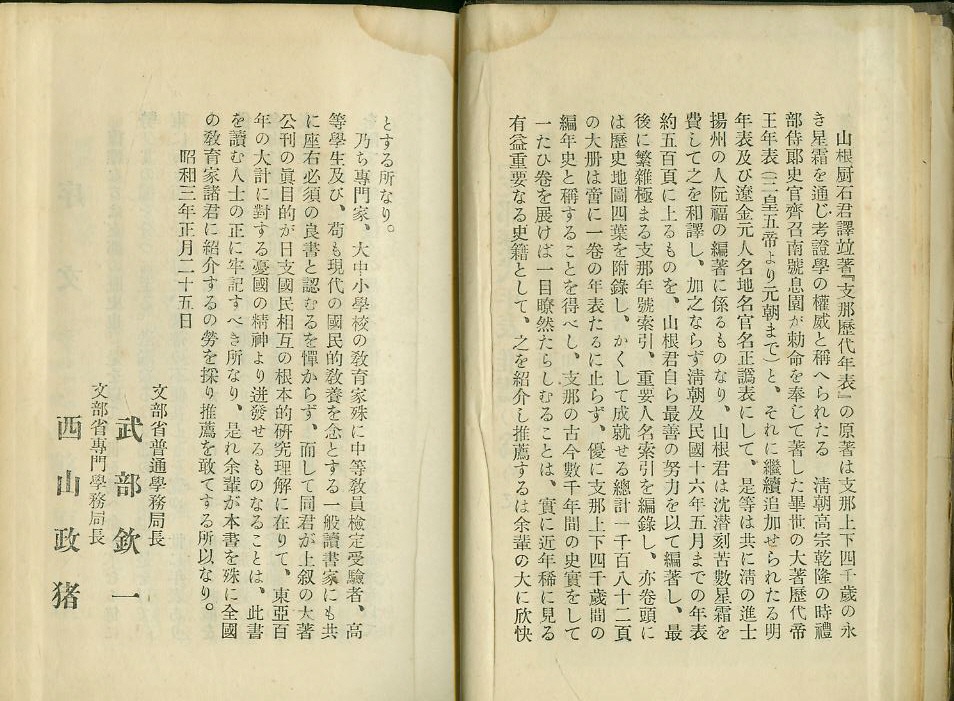 山根厨石君譯竝著『支那歷代年表』の原著は支那上下四千歲の永
き星霜を通じ考證學の權威と稱へられたる　淸朝高宗乾隆の時禮
部侍郞史官齊召南號息園が勅命を奉じて著した畢世の大著歷代帝
王年表(三皇五帝より元朝まで)と、それに繼續追加せられたる明
年表及び遼金元人名地名官名正譌表にして、是等は共に淸の進士
揚州の人阮福の編著に係るものなり、山根君は沈潜刻苦數星霜を
費して之を和譯し、加之ならず淸朝及民國十六年五月までの年表
約五百頁に上るものを、山根君自ら最善の努力を以て編著し、最
後に繁雜極まる支那年號索引、重要人名索引を編錄し、亦卷頭に
は歷史地圖四葉を附錄し、かくして成就せる總計一千百八十二頁
の大册は啻に一卷の年表たるに止らず、優に支那上下四千歲間の
編年史と稱することを得べし、支那の古今數千年間の史實をして
一たひ卷を展けば一目瞭然たらしむることは、實に近年稀に見る
有益重要なる史籍として、之を紹介し推薦するは余輩の大に欣快
とする所なり。
乃ち專門家、大中小學校の敎育家殊に中等敎員檢定受驗者、高
等學生及び、苟も現代の國民的敎養を念とする一般讀書家にも共
に座右必須の良書と認むるを憚からず、而して同君が上叙の大著
公刊の眞目的が日支國民相互の根本的硏究理解に在りて、東亞百
年の大計に對する憂國の精神より迸發せるものなることは、此書
を讀む人士の正に牢記すべき所なり、是れ余輩が本書を殊に全國
の敎育家諸君に紹介するの勞を採り推薦を敢てする所以なり。
昭和三年正月二十五日
文部省普通學務局長
武部欽一
文部省專門學務局長
西山政猪